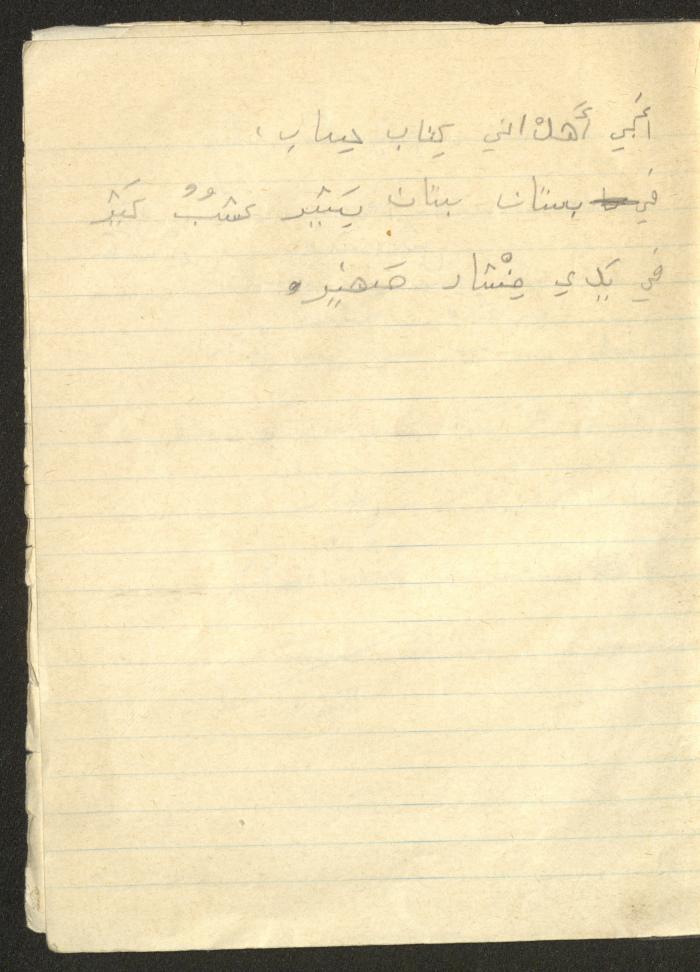 أَخي أَهْدَاني كِتاب حِساب.
في بستان بستان بَشير عشبٌ كَثير
في يَدي مِنْشار صَغير.